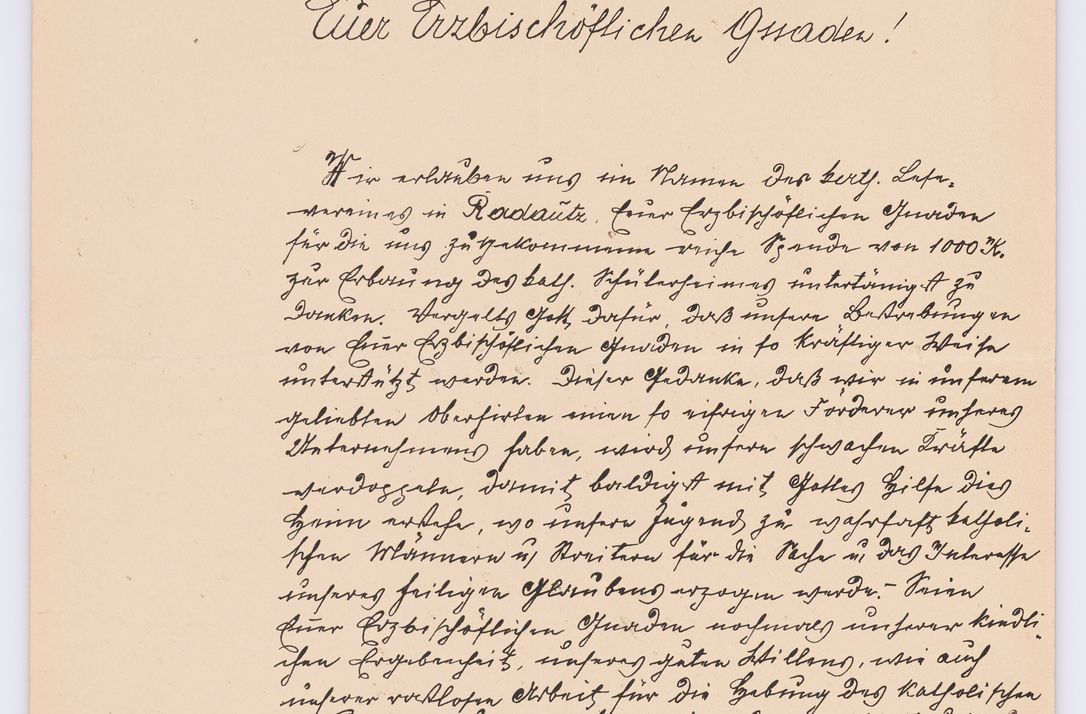 Euer Erzbischöflichen Gnaden!
Wir erlauben uns im Namen des kath. Lese-
vereines in Radautz, Euer Erzbischöflichen Gnaden
für die uns zugekommene reiche Spende von 1000 K.
zur Erbauung des kath. Schülerheimes untertänigst zu
danken. Vergelts Gott dafür, daß unsere Bestrebungen
von Euer Erzbischöflichen Gnaden in so kräftiger Weise
unterstützt werden. Dieser Gedanke, daß wir in unserem
geliebten Oberhirten einen so eifrigen Förderer unseres
Unternehmens haben, wird unsere schwachen Kräfte
verdoppeln, damit baldigst mit Gottes Hilfe dies
Heim erstehe, wo unsere Jugend zu wahrhaft katholi-
schen Männern u. Streitern für die Sache u. das Interesse
unseres heiligen Glaubens erzogen werde. - Seien
Euer Erzbischöflichen Gnaden nochmals unserer kindli-
chen Ergebenheit, unseres guten Willens, wie auch
unserer rastlosen Arbeit für die Hebung des katholischen